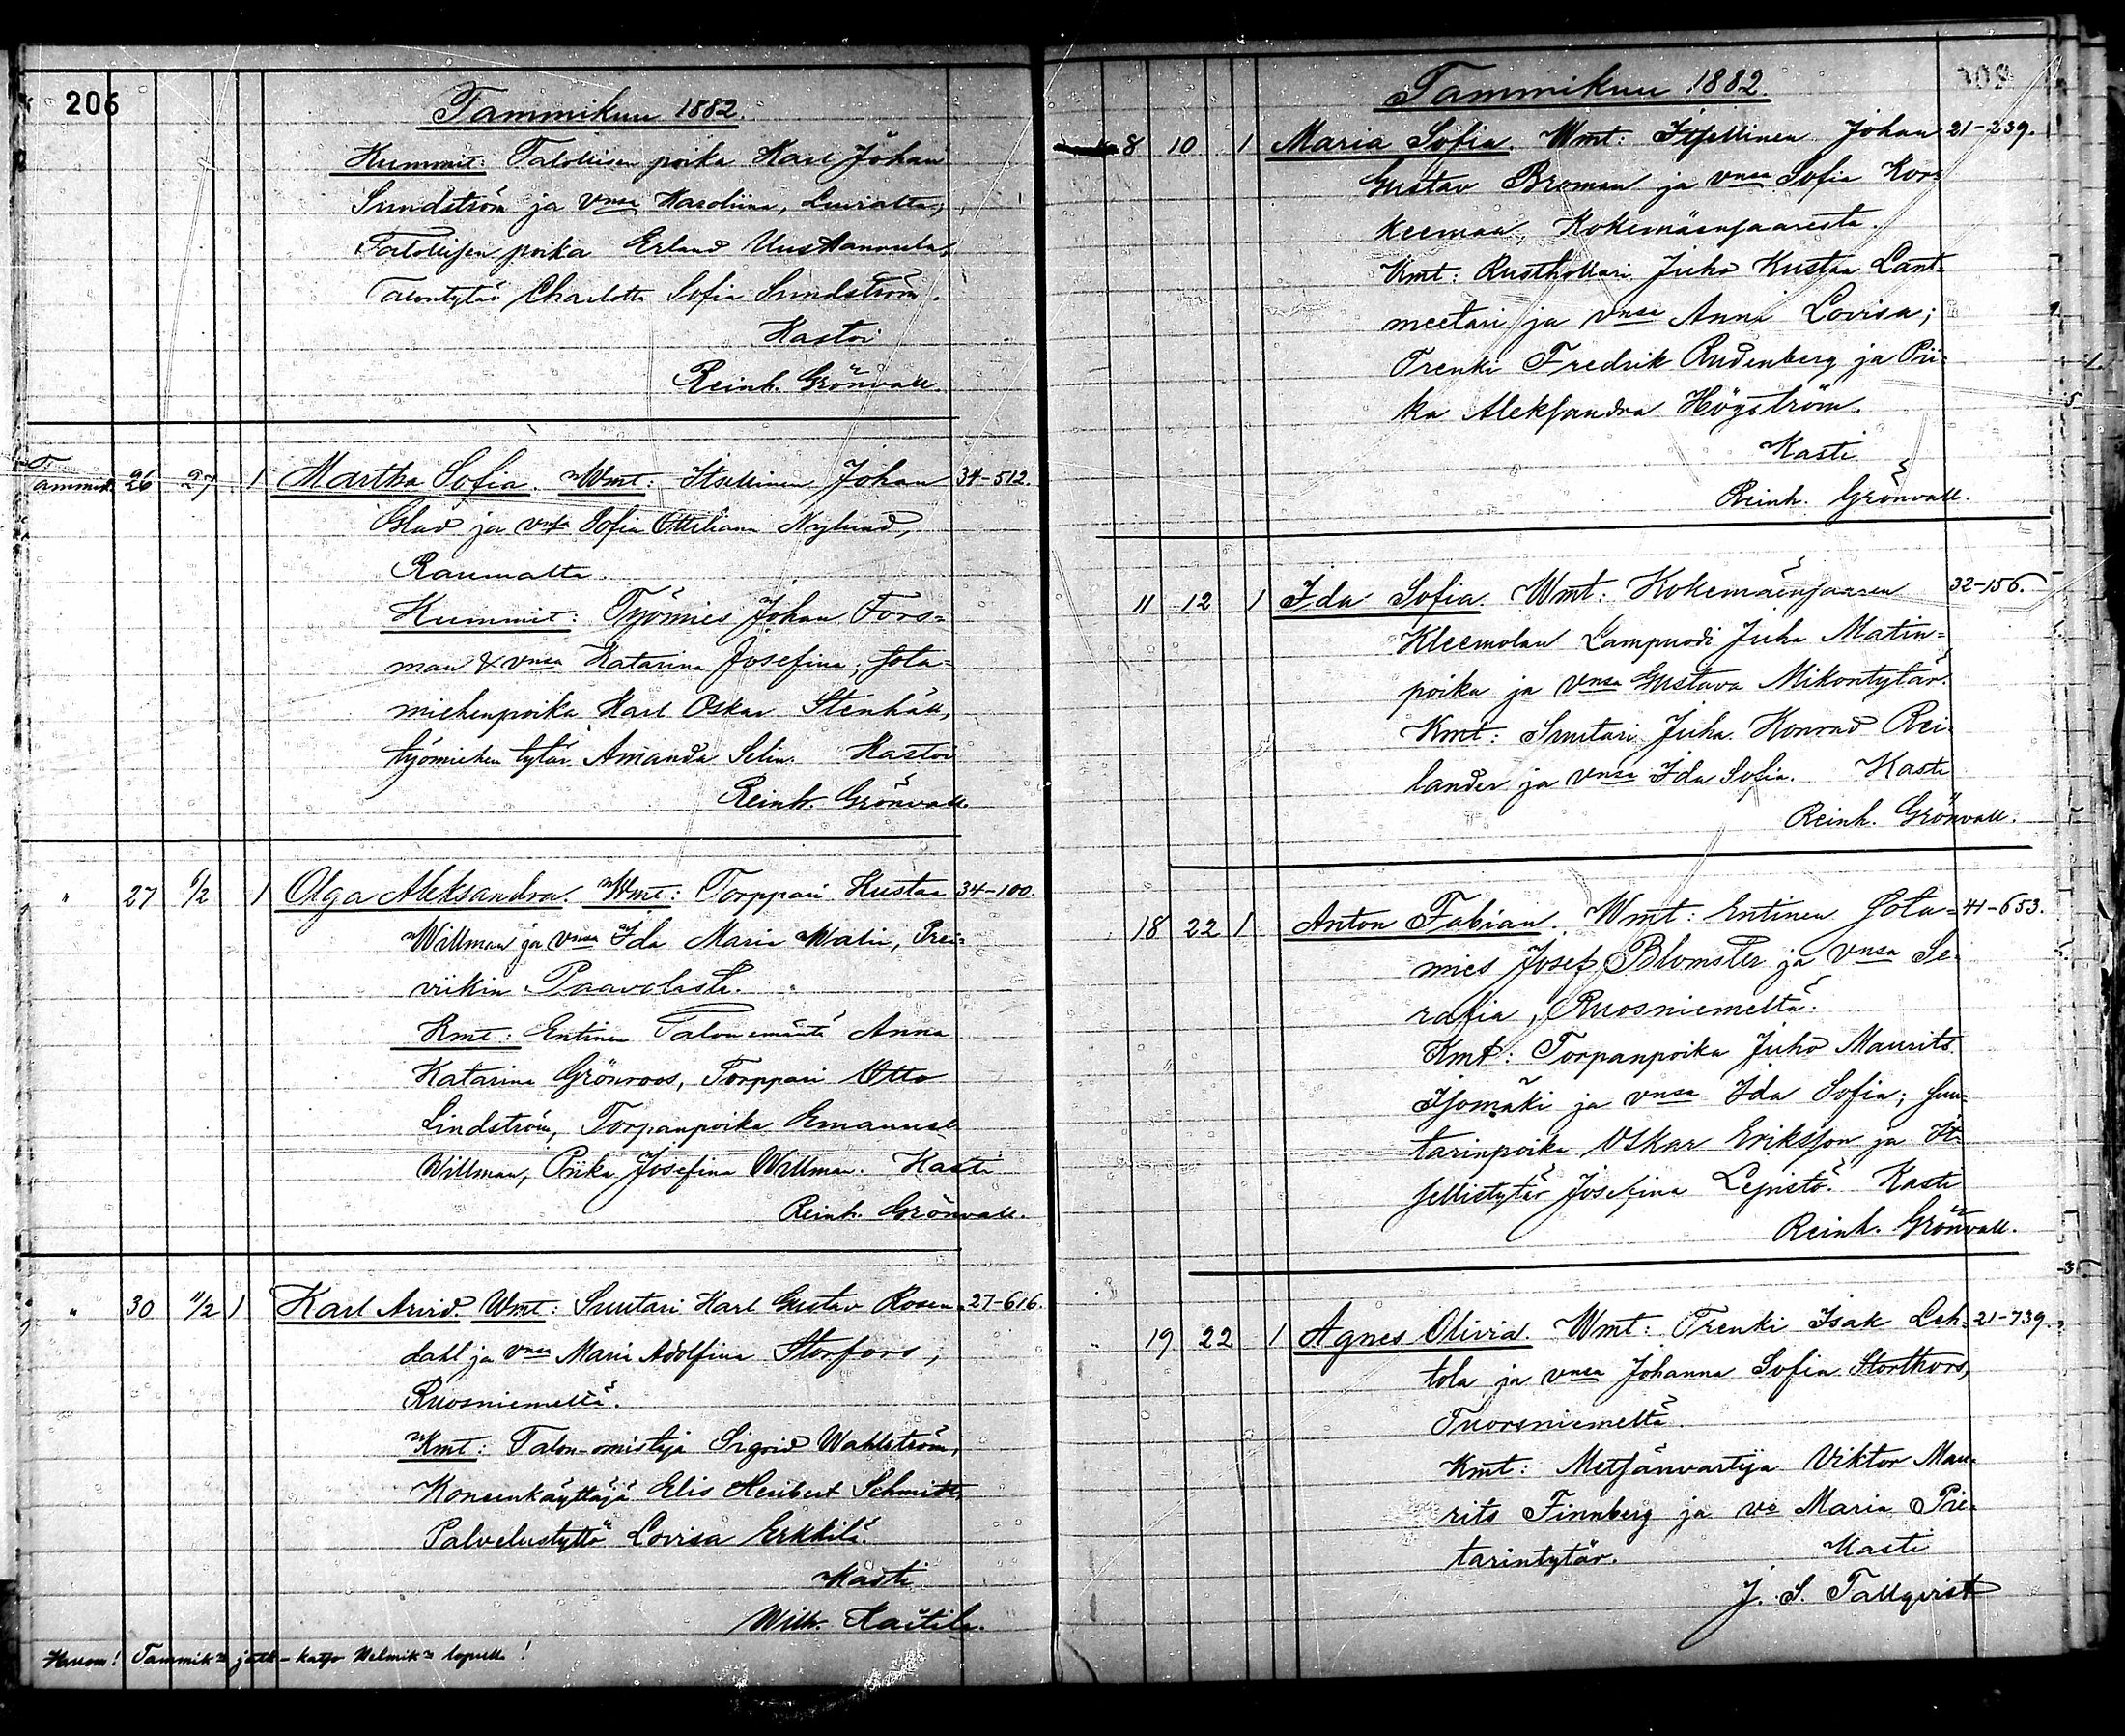 206
Tammikuu 1882.
Kummit: Talollisen poika Karl Johan
Sundström ja vnsa Karoliina, Luvialta;
Talollisen poika Erland Uusannula,
Talontytär Charlotta Sofia Sundström.
Kastoi
Reinh. Grönvall.
Tammik. 26 27 1 Martha Sofia. Wmt: Itsellinen Johan 34-512.
Glad ja vnsa Sofia Ottiliana Nylund,
Raumalta.
Kummit: Työmies Johan Fors-
man & vnsa Katarina Josefina, sota-
miehenpoika Karl Oskar Stenhäll,
työmiehen tytär Amanda Selin. Kastoi
Reinh. Grönvall.
" 27 6/2 1 Olga Aleksandra. Wmt: Torppari Kustaa 34-100.
Willman ja vnsa Ida Maria Malin, Prei-
viikin Paavolasta.
Kmt: Entinen Talonemäntä Anna
Katarina Grönroos, Torppari Otto
Lindström, Torpanpoika Emanuel
Willman, Piika Josefina Willman. Kasti
Reinh. Grönvall.
" 30 11/2 1 Karl Arvid. Wmt: Suutari Karl Gustav Rosen- 27-616.
dahl ja vnsa Maria Adolfina Storfors,
Ruosniemeltä.
Kmt: Talon-omistaja Sigrid Wahlström,
Koneenkäyttäjä Elis Heribert Schmidt,
Palvelustyttö Lovisa Erkkilä.
Kasti
Wilh. Kaitila.
Huom! Tammik:n jatk- katso Helmik:n lopulla!
Tammikuu 1882.
8 10 1 Maria Sofia. Wmt: Itsellinen Johan 21-239.
Gustav Broman ja vnsa Sofia Kor-
keemaa, Kokemäensaaresta.
Kmt: Rusthollari Juho Kustaa Lant-
meetari ja vnsa Anna Lovisa;
Trenki Fredrik Rudenberg ja Pii-
ka Aleksandra Högström.
Kasti
Reinh. Grönvall.
11 12 1 Ida Sofia. Wmt: Kokemäensaaren 32-156.
Kleemolan Lampuodi Juha Matin-
poika ja vnsa Gustava Mikontytär.
Kmt: Suutari Juha Konrad Rei-
lander ja vnsa Ida Sofia. Kasti
Reinh. Grönvall.
18 22 1 Anton Fabian. Wmt: Entinen Sota- 41-653.
mies Josef Blomster ja vnsa Se-
rafia, Ruosniemeltä.
Kmt: Torpanpoika Juho Maurits
Isomäki ja vnsa Ida Sofia; Suu-
tarinpoika Oskar Eriksson ja It-
sellistytär Josefina Lepistö. Kasti
Reinh. Grönvall.
" 19 22 1 Agnes Olivia. Wmt: Trenki Isak Leh- 21-739.
tola ja vnsa Johanna Sofia Storthors,
Tuorsniemeltä.
Kmt: Metsänvartija Viktor Mau-
rits Finnberg ja vo Maria Pie-
tarintytär. Kasti
J. S. Tallqvist